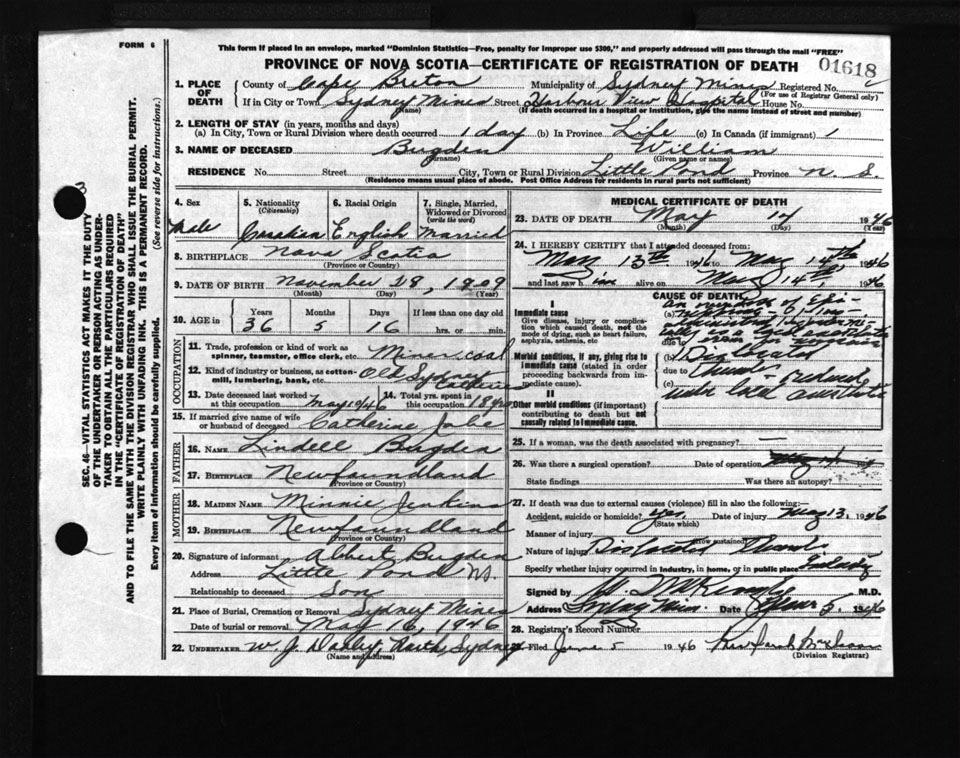 FORM 6
This form if placed in an envelope, marked "Dominion Statistics—Free, penalty for improper use $300," and properly addressed will pass through the mail "FREE"
PROVINCE OF NOVA SCOTIA—CERTIFICATE OF REGISTRATION OF DEATH
01618
1. PLACE OF DEATH County of Cape Breton Municipality of Sydney Mines Registered No.
(For use of Registrar General only)
If in City or Town Sydney Mines Street Harbour View Hospital House No.
(Name) (If death occurred in a hospital or institution, give the name instead of street and number)
2. LENGTH OF STAY (in years, months and days)
(a) In City, Town or Rural Division where death occurred 1 day (b) In Province Life (c) In Canada (if immigrant) /
3. NAME OF DECEASED Bugden William
(Surname) (Given name or names)
RESIDENCE No. Street City, Town or Rural Division Little Pond Province N.S.
(Residence means usual place of abode. Post Office Address for residents in rural parts not sufficient)
4. Sex Male
5. Nationality (Citizenship) Canadian
6. Racial Origin English
7. Single, Married, Widowed or Divorced (write the word) Married
8. BIRTHPLACE Nova Scotia
(Province or Country)
9. DATE OF BIRTH November 28, 1909
(Month) (Day) (Year)
10. AGE in Years Months Days If less than one day old
36 5 16 hrs. or min.
OCCUPATION
11. Trade, profession or kind of work as spinner, teamster, office clerk, etc. Miner coal
12. Kind of industry or business, as cotton-mill, lumbering, bank, etc. Old Sydney Collieries
13. Date deceased last worked at this occupation May 1946
14. Total yrs. spent in this occupation 18 yrs
15. If married give name of wife or husband of deceased Catherine
FATHER
16. NAME Lindell Bugden
17. BIRTHPLACE Newfoundland
(Province or Country)
MOTHER
18. MAIDEN NAME Minnie Jenkins
19. BIRTHPLACE Newfoundland
(Province or Country)
20. Signature of informant Albert Bugden
Address Little Pond N.S.
Relationship to deceased Son
21. Place of Burial, Cremation or Removal Sydney Mines
Date of burial or removal May 16, 1946
22. UNDERTAKER W. J. Sydney
(Name and address)
MEDICAL CERTIFICATE OF DEATH
23. DATE OF DEATH May 14 1946
(Month) (Day) (Year)
24. I HEREBY CERTIFY that I attended deceased from:
May 13th 1946 to May 14th 1946
and last saw him alive on May 14th, 1946
CAUSE OF DEATH
I
Immediate cause
Give disease, injury or complication which caused death, not the mode of dying, such as heart failure, asphyxia, asthenia, etc
(a) An overdose of
due to
Morbid conditions, if any, giving rise to immediate cause (stated in order proceeding backwards from immediate cause).
(b) Dislocated
due to Thumb - reduced
(c) under local
II
Other morbid conditions (if important) contributing to death but not causally related to immediate cause.
25. If a woman, was the death associated with pregnancy? —
26. Was there a surgical operation? Date of operation
State findings Was there an autopsy?
27. If death was due to external causes (violence) fill in also the following:—
Accident, suicide or homicide? yes Date of injury May 13, 1946
(State which)
Manner of injury
(How sustained)
Nature of injury Dislocated Thumb
Specify whether injury occurred in industry, in home, or in public place
Signed by M.D.
Address Sydney Mines Date June 5 1946
28. Registrar's Record Number
29. Filed June 5 1946
(Division Registrar)
SEC. 46—VITAL STATISTICS ACT MAKES IT THE DUTY
OF THE UNDERTAKER OR PERSON ACTING AS UNDER-
TAKER TO OBTAIN ALL THE PARTICULARS REQUIRED
IN THE "CERTIFICATE OF REGISTRATION OF DEATH"
AND TO FILE THE SAME WITH THE DIVISION REGISTRAR WHO SHALL ISSUE THE BURIAL PERMIT.
WRITE PLAINLY WITH UNFADING INK. THIS IS A PERMANENT RECORD.
Every item of information should be carefully supplied. (See reverse side for instructions.)